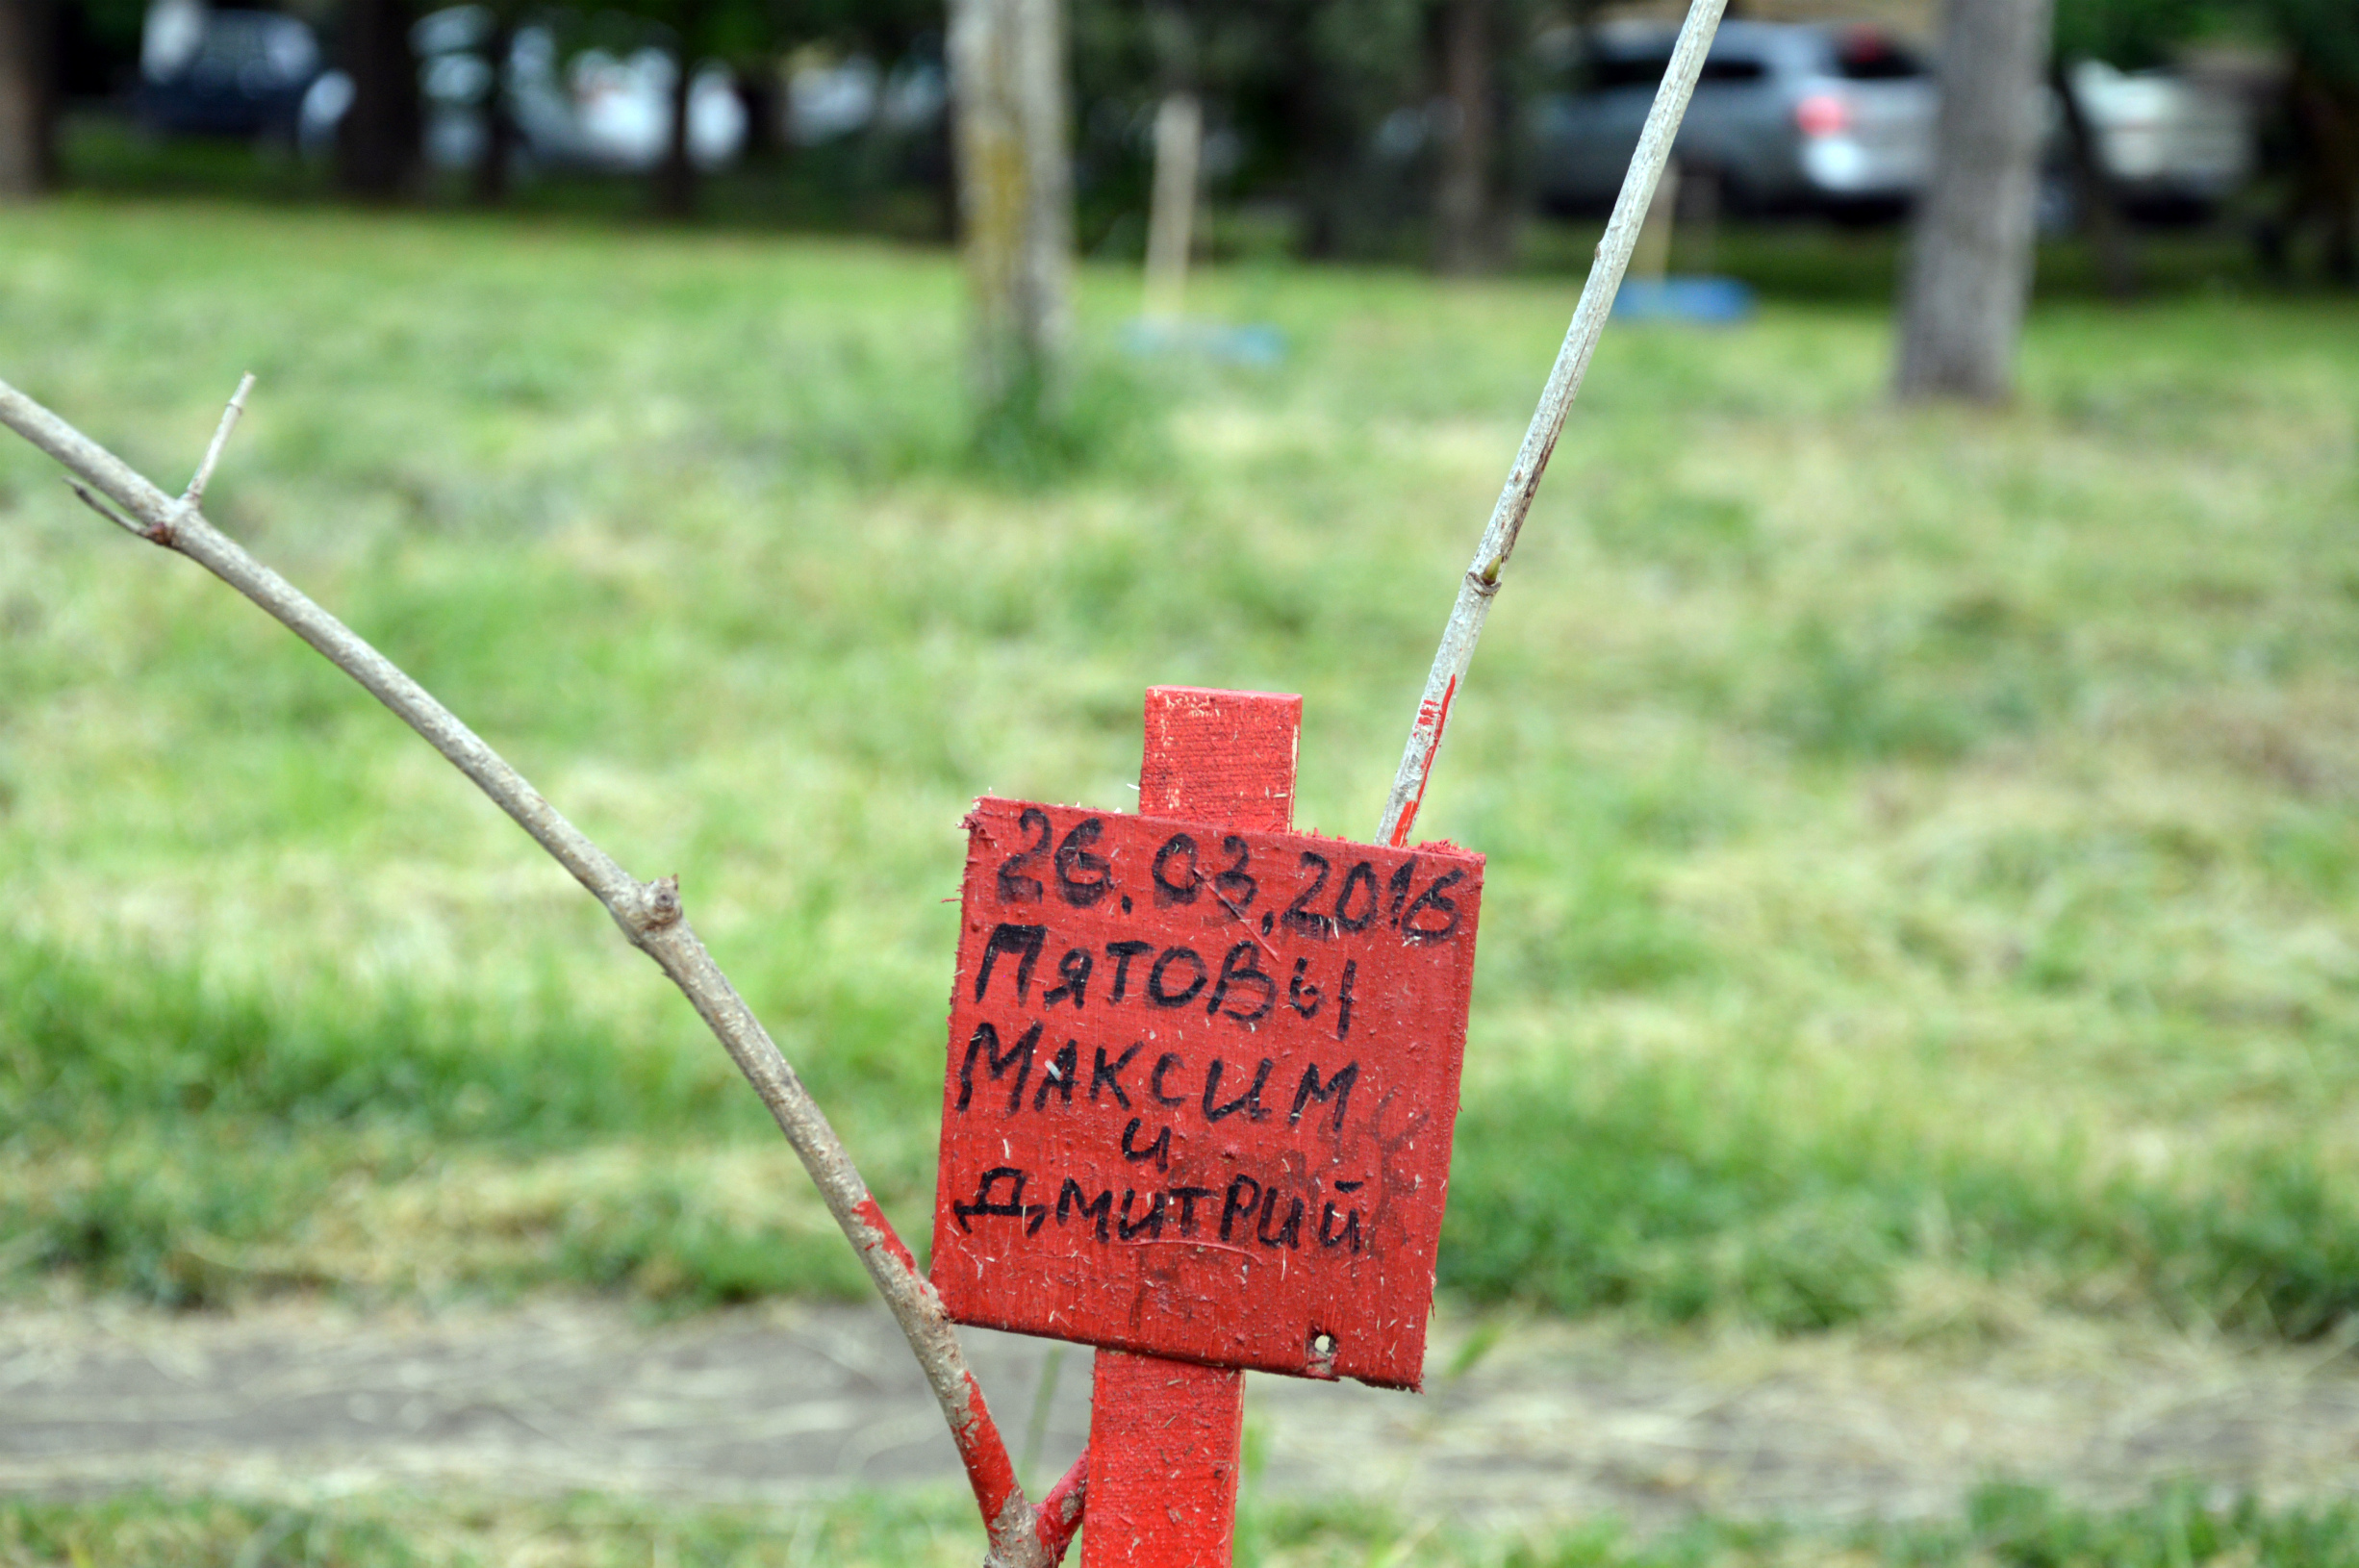 26.03.2016
Пятовы
Максим
и
Дмитрий